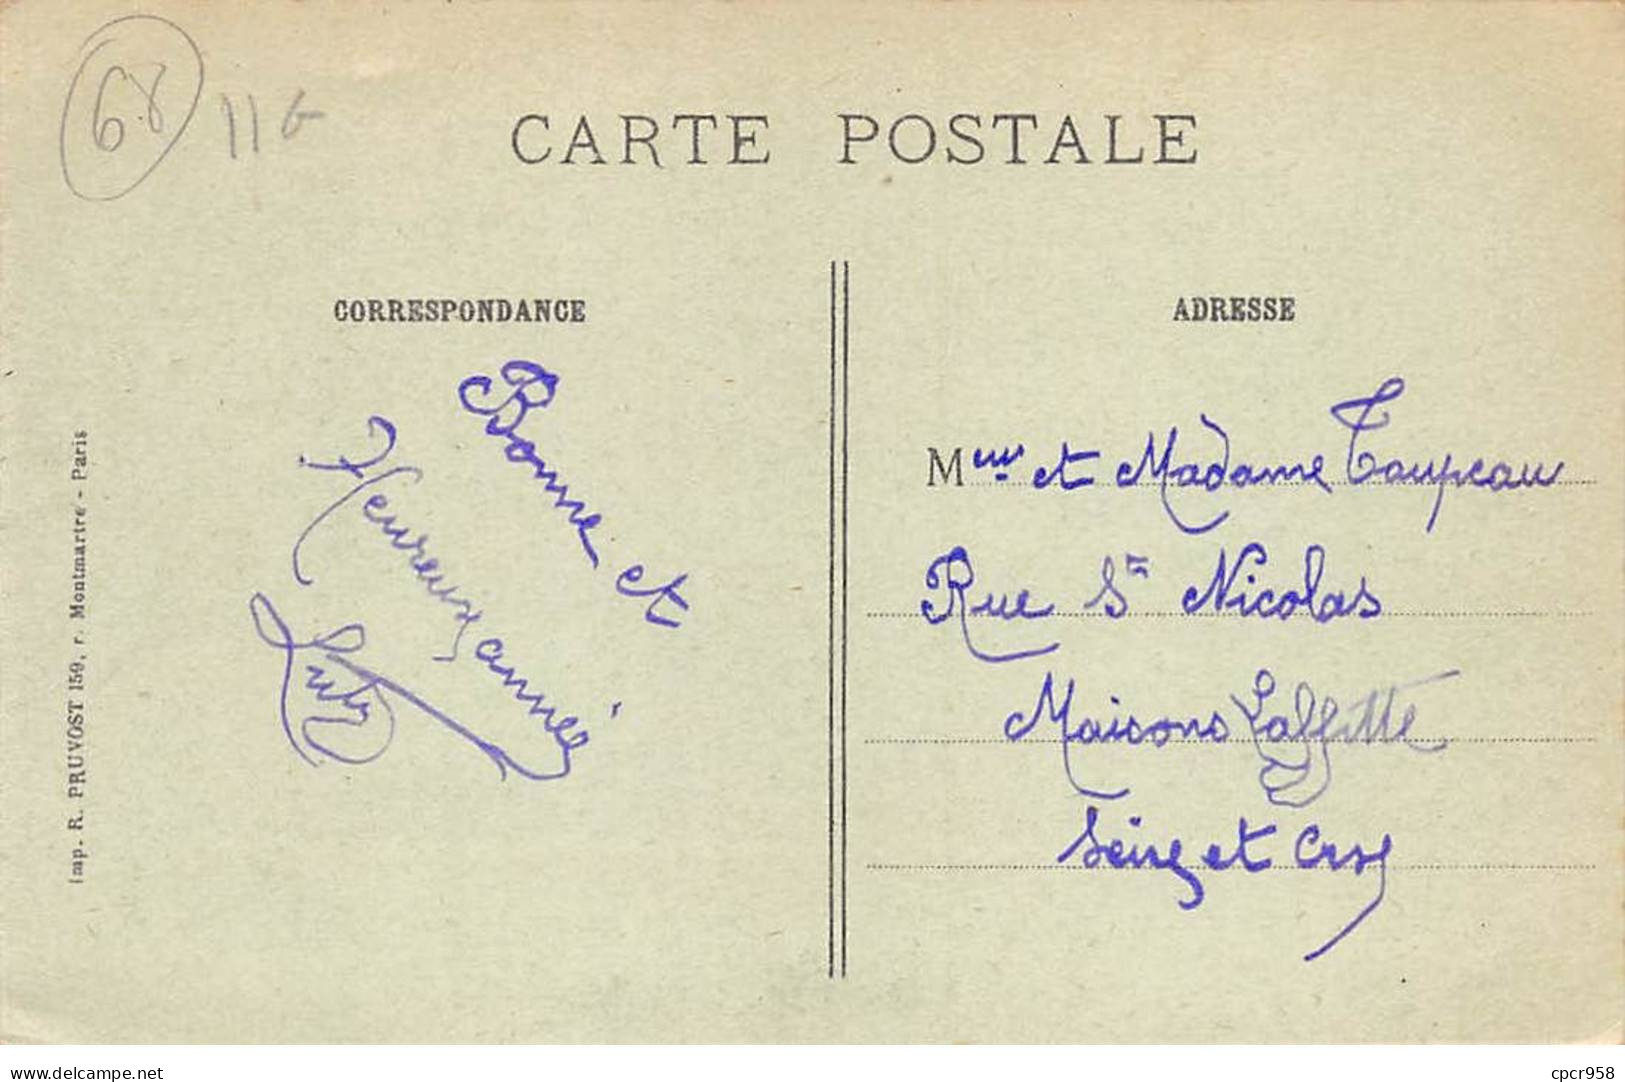 68
CARTE POSTALE
CORRESPONDANCE
Bonne et
Heureuse année
ADRESSE
Meur et Madame Taupeau
Rue St Nicolas
Maisons Laffitte
Seine et Oise
Imp. R. PRUVOST 159, r. Montmartre - Paris
delcampe.net
cpcr958